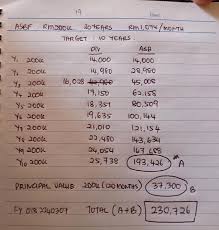 19
ASBF RM200K 20 YEARS RM1,074/MONTH
TARGET: 10 YEARS.
DIV ASB
Y1 200K 14,000 14,000
Y2 200K 14,980 28,980
Y3 200K 16,028 45,008
Y4 200K 17,150 62,158
Y5 200K 18,351 80,509
Y6 200K 19,635 100,144
Y7 200K 21,010 121,154
Y8 200K 22,480 143,634
Y9 200K 24,054 167,688
Y10 200K 25,738 193,426 *A
PRINCIPAL VALUE 200K (120 MONTHS) 37,300 B
FY 018 2240307 TOTAL (A+B) 230,726